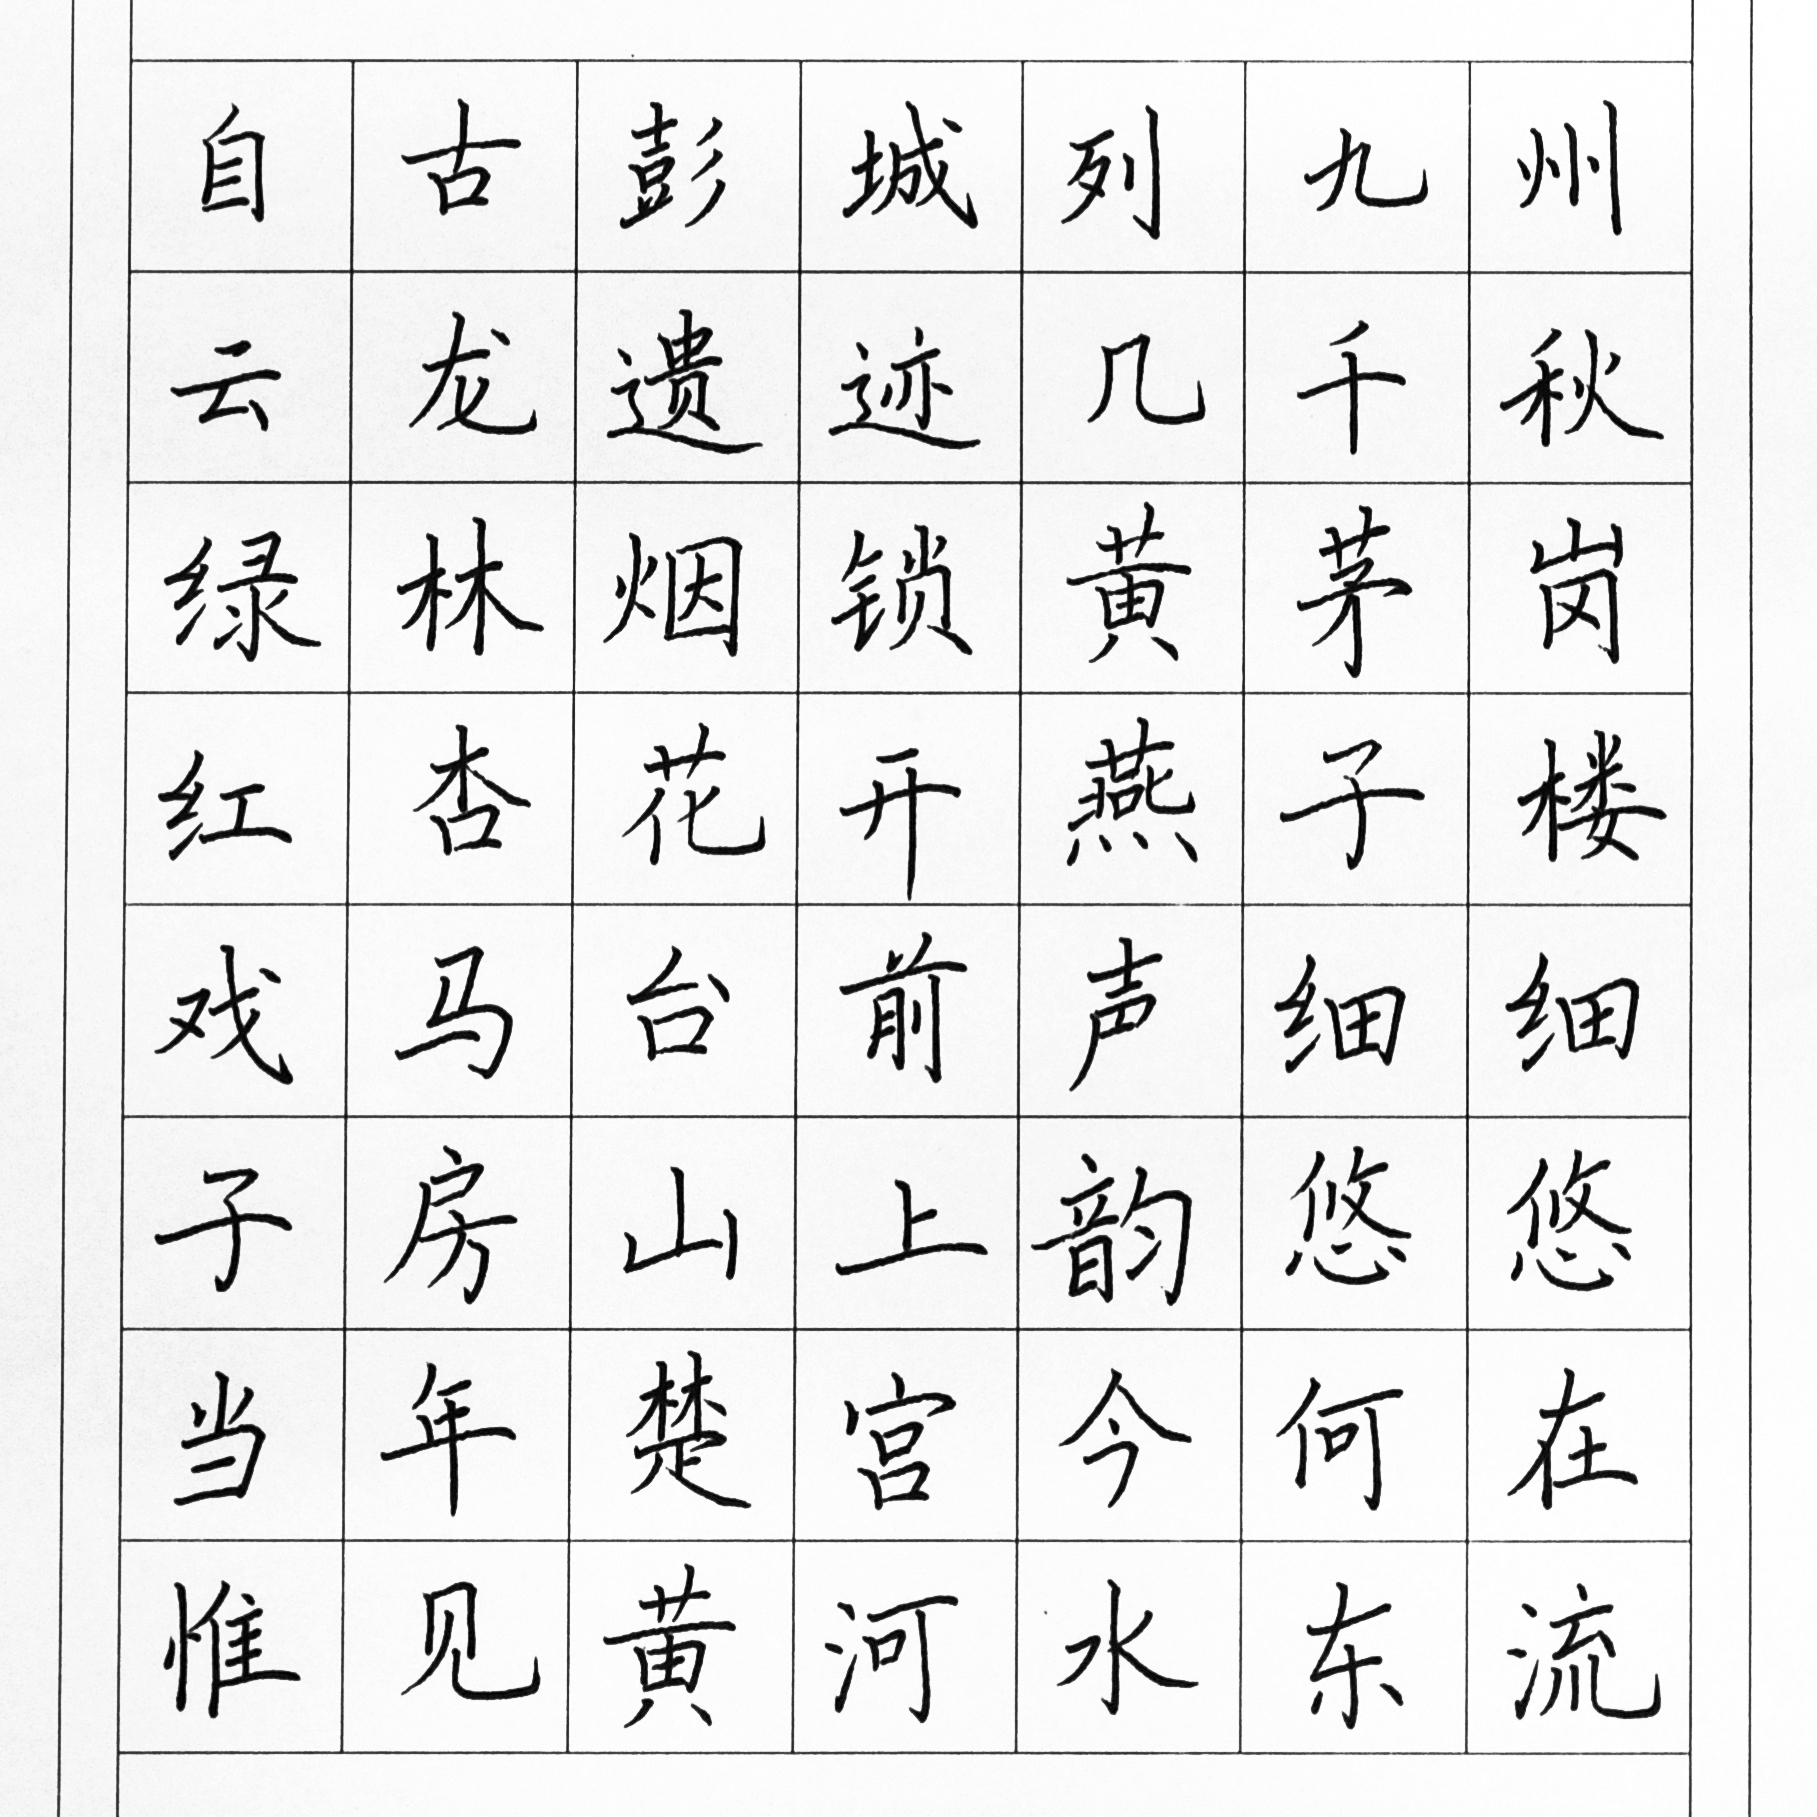 自古彭城列九州
云龙遗迹几千秋
绿林烟锁黄茅岗
红杏花开燕子楼
戏马台前声细细
子房山上韵悠悠
当年楚宫今何在
惟见黄河水东流